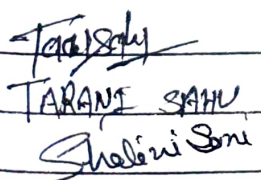 TARANI SAHU
Shalini Soni